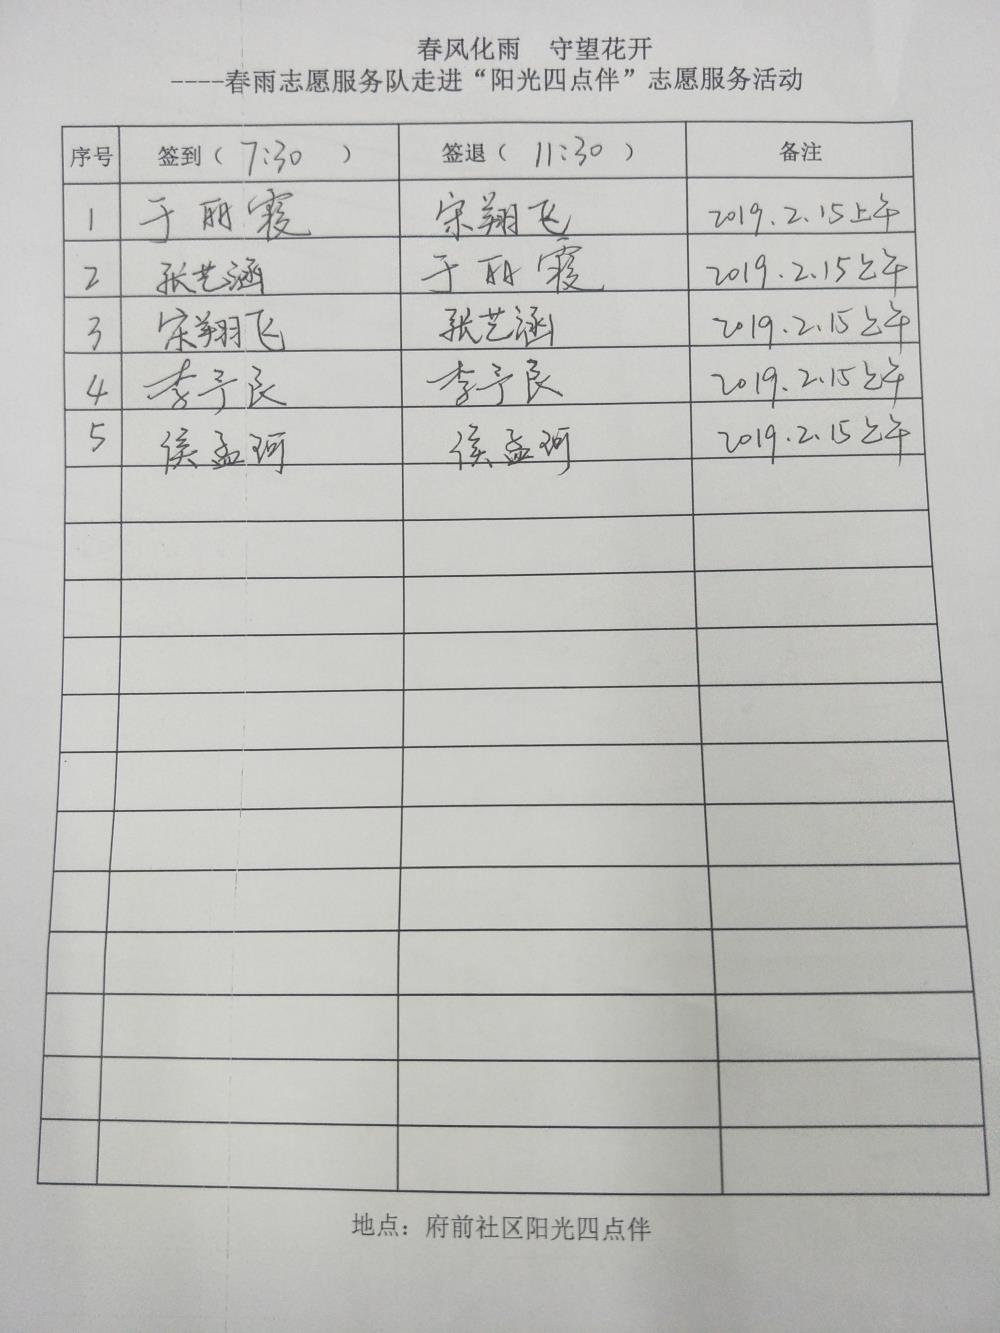 春风化雨 守望花开
----春雨志愿服务队走进“阳光四点伴”志愿服务活动
序号 签到（ 7:30 ） 签退（ 11:30 ） 备注
1 于丽霞 宋翔飞 2019.2.15上午
2 张艺涵 于丽霞 2019.2.15上午
3 宋翔飞 张艺涵 2019.2.15上午
4 李予良 李予良 2019.2.15上午
5 侯孟珂 侯孟珂 2019.2.15上午
地点：府前社区阳光四点伴